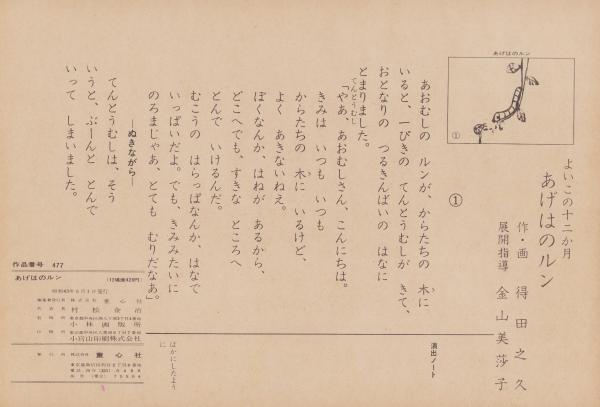 よいこの十二か月
あげはのルン
作・画 得田之久
展開指導 金山美莎子
あげはのルン
①
①
あおむしの ルンが、からたちの 木に
いると、一ぴきの てんとうむしが きて、
おとなりの つるきんばいの はなに
とまりました。
てんとうむし
「やあ、あおむしさん、こんにちは。
きみは いつも いつも
からたちの 木に いるけど、
よく あきないねえ。
ぼくなんか、はねが あるから、
どこへでも、すきな ところへ
とんで いけるんだ。
むこうの はらっぱなんか、はなで
いっぱいだよ。でも、きみみたいに
のろまじゃあ、とても むりだなあ」
―ぬきながら―
てんとうむしは、そう
いうと、ぶーんと とんで
いって しまいました。
演出ノート
ばかにしたよう
に
作品番号 477
あげはのルン
(12場面420円)
株式会社 童心社
村松金治
小林画版所
小宮山印刷株式会社
発行所 株式会社 童心社